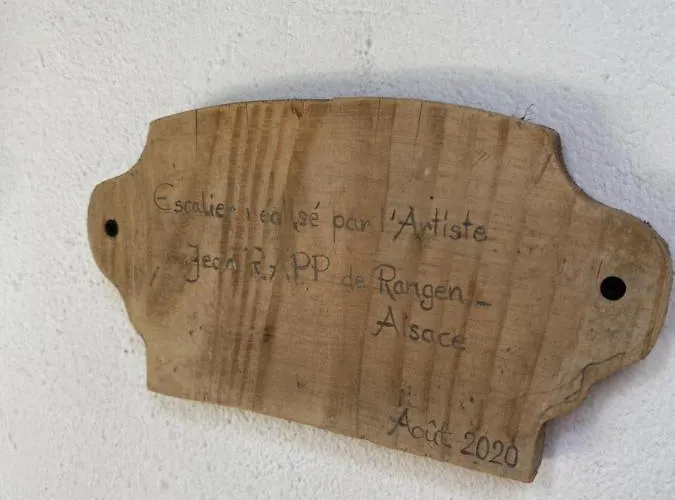 Escalier réalisé par l'Artiste
Jean RAPP de Rangen_
Alsace
Août 2020